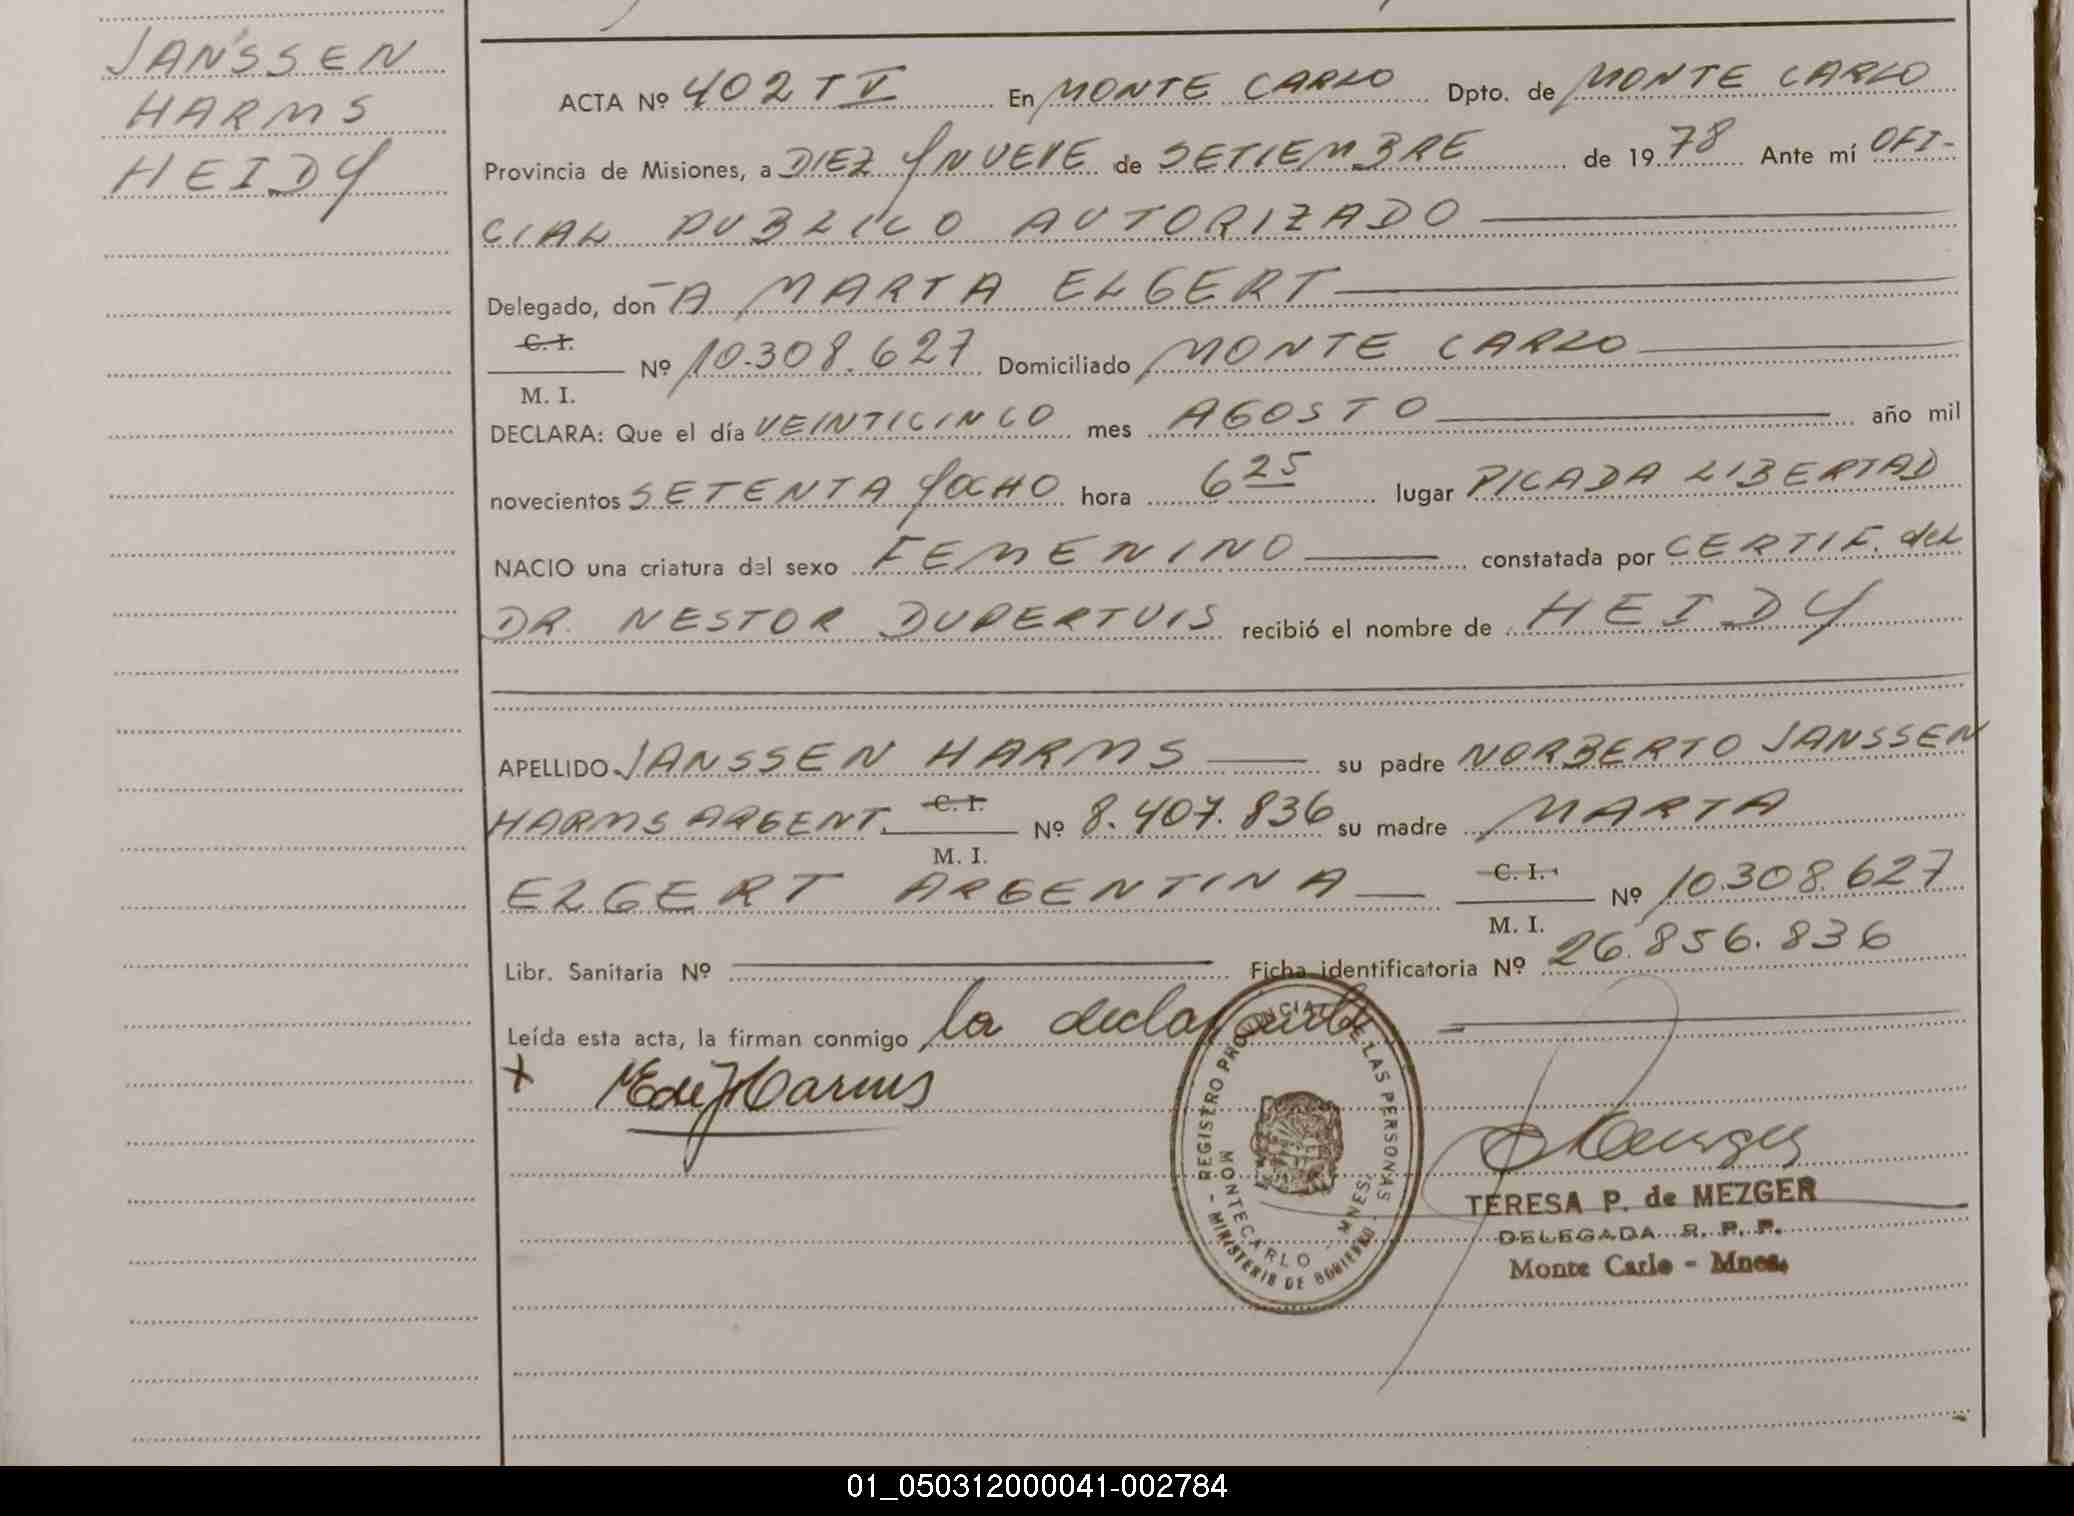 JANSSEN
HARMS
HEIDY
ACTA Nº 402 T V En MONTE CARLO Dpto. de MONTE CARLO
Provincia de Misiones, a DIEZ Y NUEVE de SETIEMBRE de 1978 Ante mí OFI-
CIAL PUBLICO AUTORIZADO
Delegado, don A MARTA ELGERT
C. I.
Nº 10.308.627 Domiciliado MONTE CARLO
M. I.
DECLARA: Que el día VEINTICINCO mes AGOSTO año mil
novecientos SETENTA Y OCHO hora 6 25 lugar PICADA LIBERTAD
NACIO una criatura del sexo FEMENINO constatada por CERTIF. del
DR. NESTOR DUPERTUIS recibió el nombre de HEIDY
APELLIDO JANSSEN HARMS su padre NORBERTO JANSSEN
HARMS ARGENT. C. I. Nº 8.407.836 su madre MARTA
M. I.
ELGERT ARGENTINA C. I. Nº 10.308.627
M. I.
Libr. Sanitaria Nº Ficha identificatoria Nº 26.856.836
Leída esta acta, la firman conmigo la declarante
+
REGISTRO PROVINCIAL DE LAS PERSONAS
MONTECARLO - MNES.
- MINISTERIO DE GOBIERNO -
TERESA P. de MEZGER
DELEGADA R. P. P.
Monte Carlo - Mnes.
01_050312000041-002784